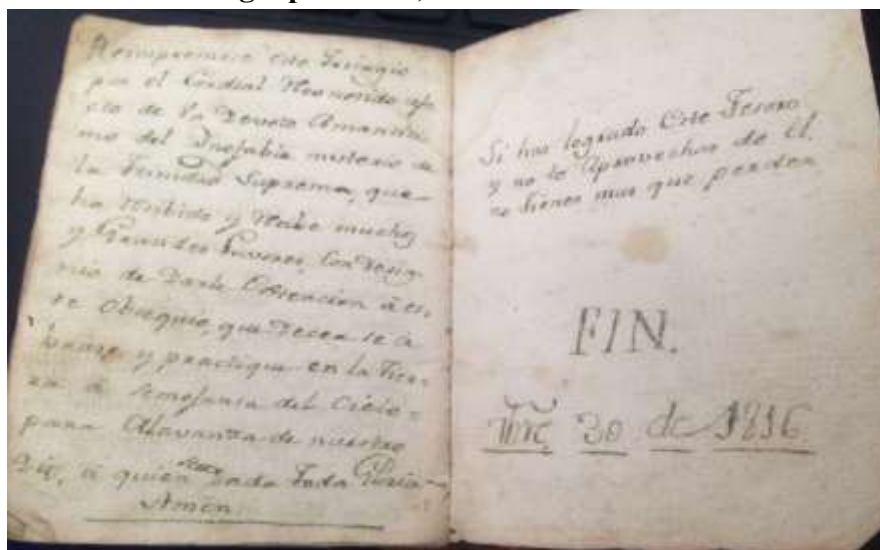 Reimprimere este Trisagio
por el Cordial Reverendo afe
cto de la Devota Amantis
mo del Inefable misterio de
la Trinidad Suprema, que
ha recibido y recibe muchos
y Grandes favores, con desig
nio de Darle Extencion á es
te obsequio, que decea se a
y practique en la Tier
ra á semejansa del Cielo
para Alavanza de nuestro
á quien sea dada toda Gloria
Amen.
Si has logrado Este Tesoro
y no te aprovechas de El,
no tienes mas que perder
FIN.
30 de 1816